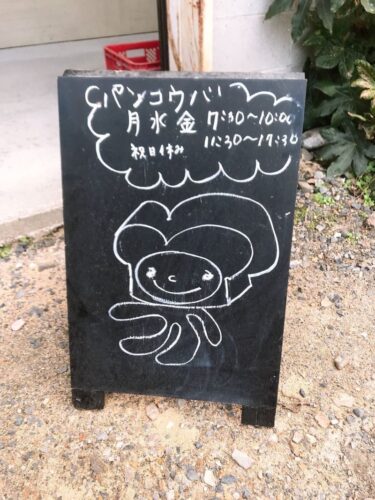 パンコウバ
月 水 金 7:30〜10:00
祝日休み 11:30〜17:30